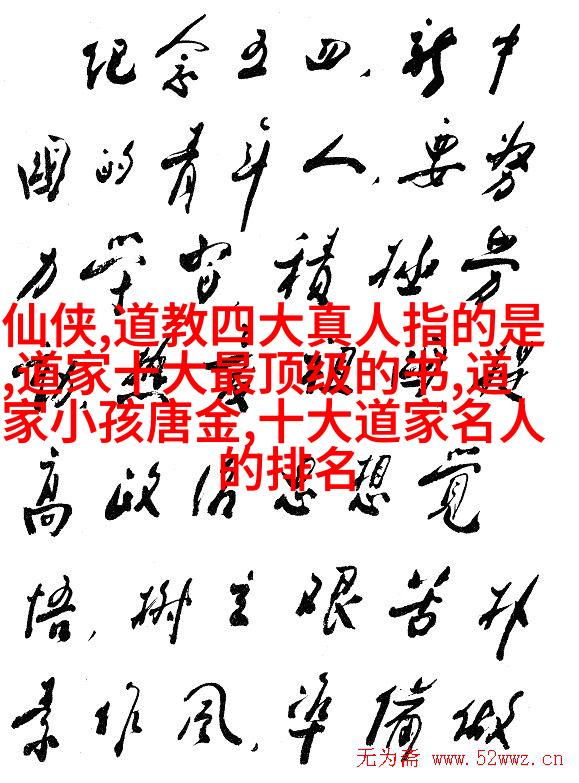 纪念五四,新中
國的青年人,要努
力学習,積極劳
仙侠,道教四大真人指的是
,道家十大最顶级的书,道
家小孩唐金,十大道家名人
的排名
高政治思想觉
悟,樹立艰苦朴
素作风,準備做
无为斋 www.52wwz.cn